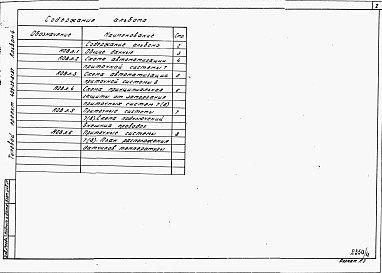 2
Содержание альбома
Обозначение Наименование Стр.
Содержание альбома 2
АОВ.Л.1 Общие данные 3
АОВ.Л.2 Схема автоматизации 4
приточной системы 7
АОВ.Л.3 Схема автоматизации 5
приточной системы 8
АОВ.Л.4 Схема принципиальная 6
защиты от замерзания
приточных систем 7(8)
АОВ.Л.5 Приточные системы 7
7(8). Схема подключений
внешних проводок
АОВ.Л.6 Приточные системы 8
7(8). План расположения
датчиков температуры
Типовой проект Альбом
Формат А3